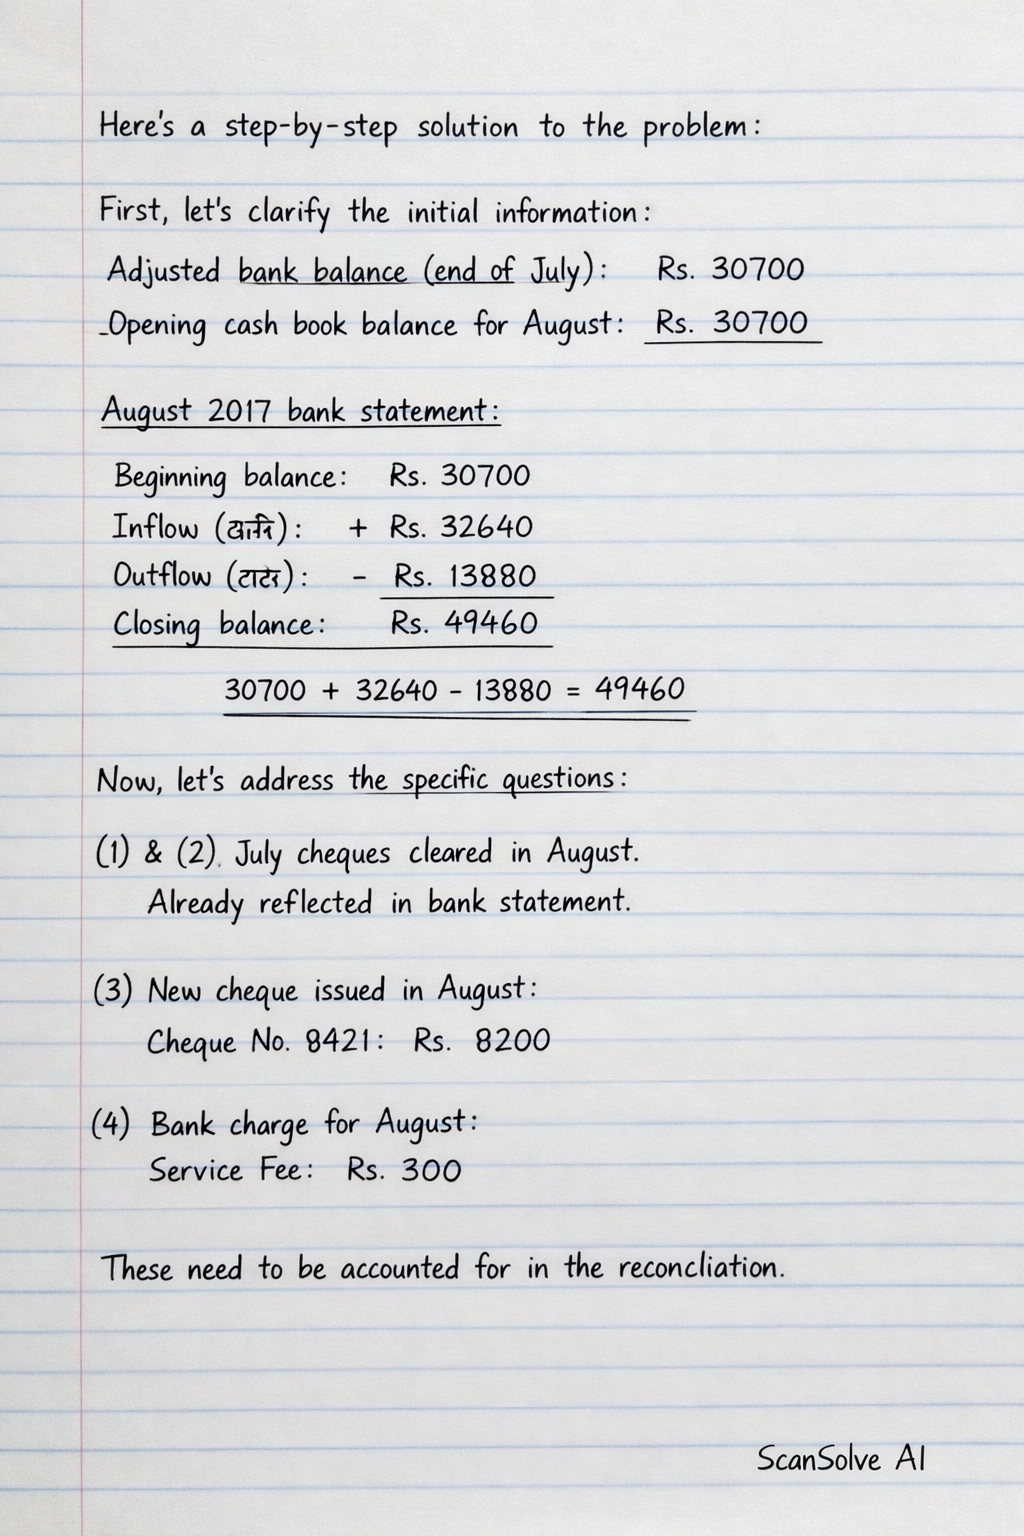 Here's a step-by-step solution to the problem:
First, let's clarify the initial information:
Adjusted bank balance (end of July): Rs. 30700
Opening cash book balance for August: Rs. 30700
August 2017 bank statement:
Beginning balance: Rs. 30700
Inflow ( ): + Rs. 32640
Outflow ( ): - Rs. 13880
Closing balance: Rs. 49460
30700 + 32640 - 13880 = 49460
Now, let's address the specific questions:
(1) & (2). July cheques cleared in August.
Already reflected in bank statement.
(3) New cheque issued in August:
Cheque No. 8421: Rs. 8200
(4) Bank charge for August:
Service Fee: Rs. 300
These need to be accounted for in the reconcliation.
ScanSolve AI